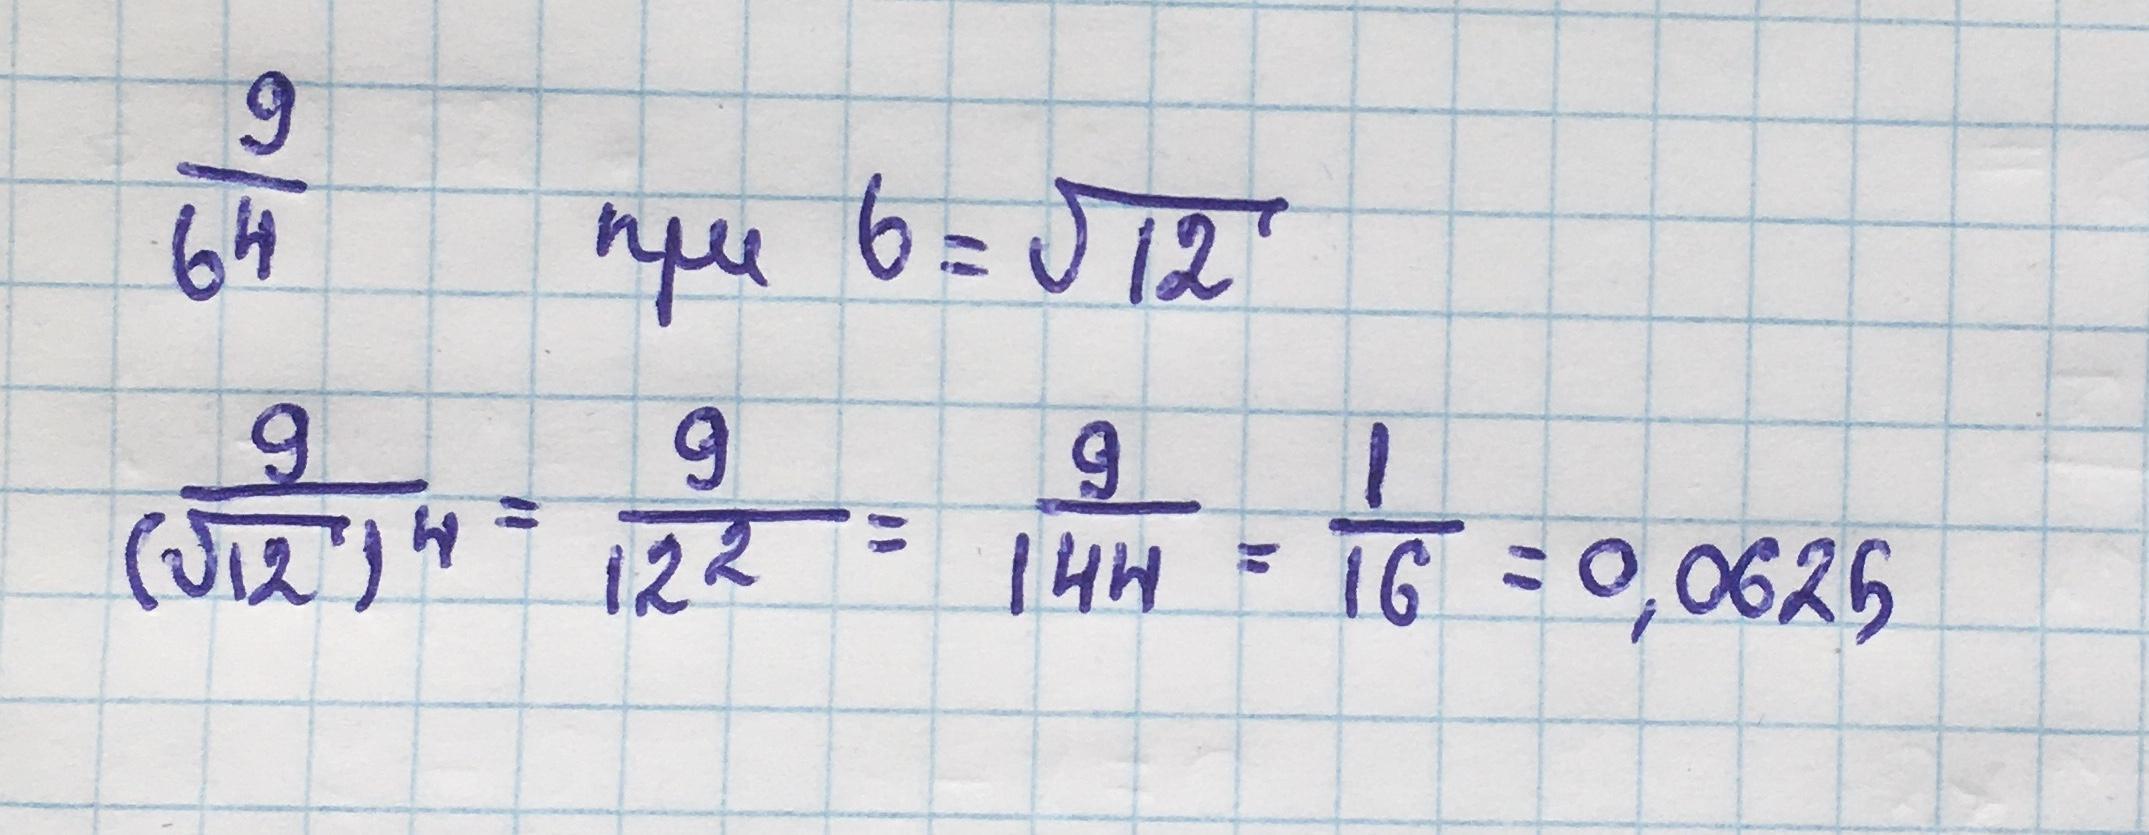 9/b⁴ при b = √12
9/(√12)⁴ = 9/12² = 9/144 = 1/16 = 0,0625